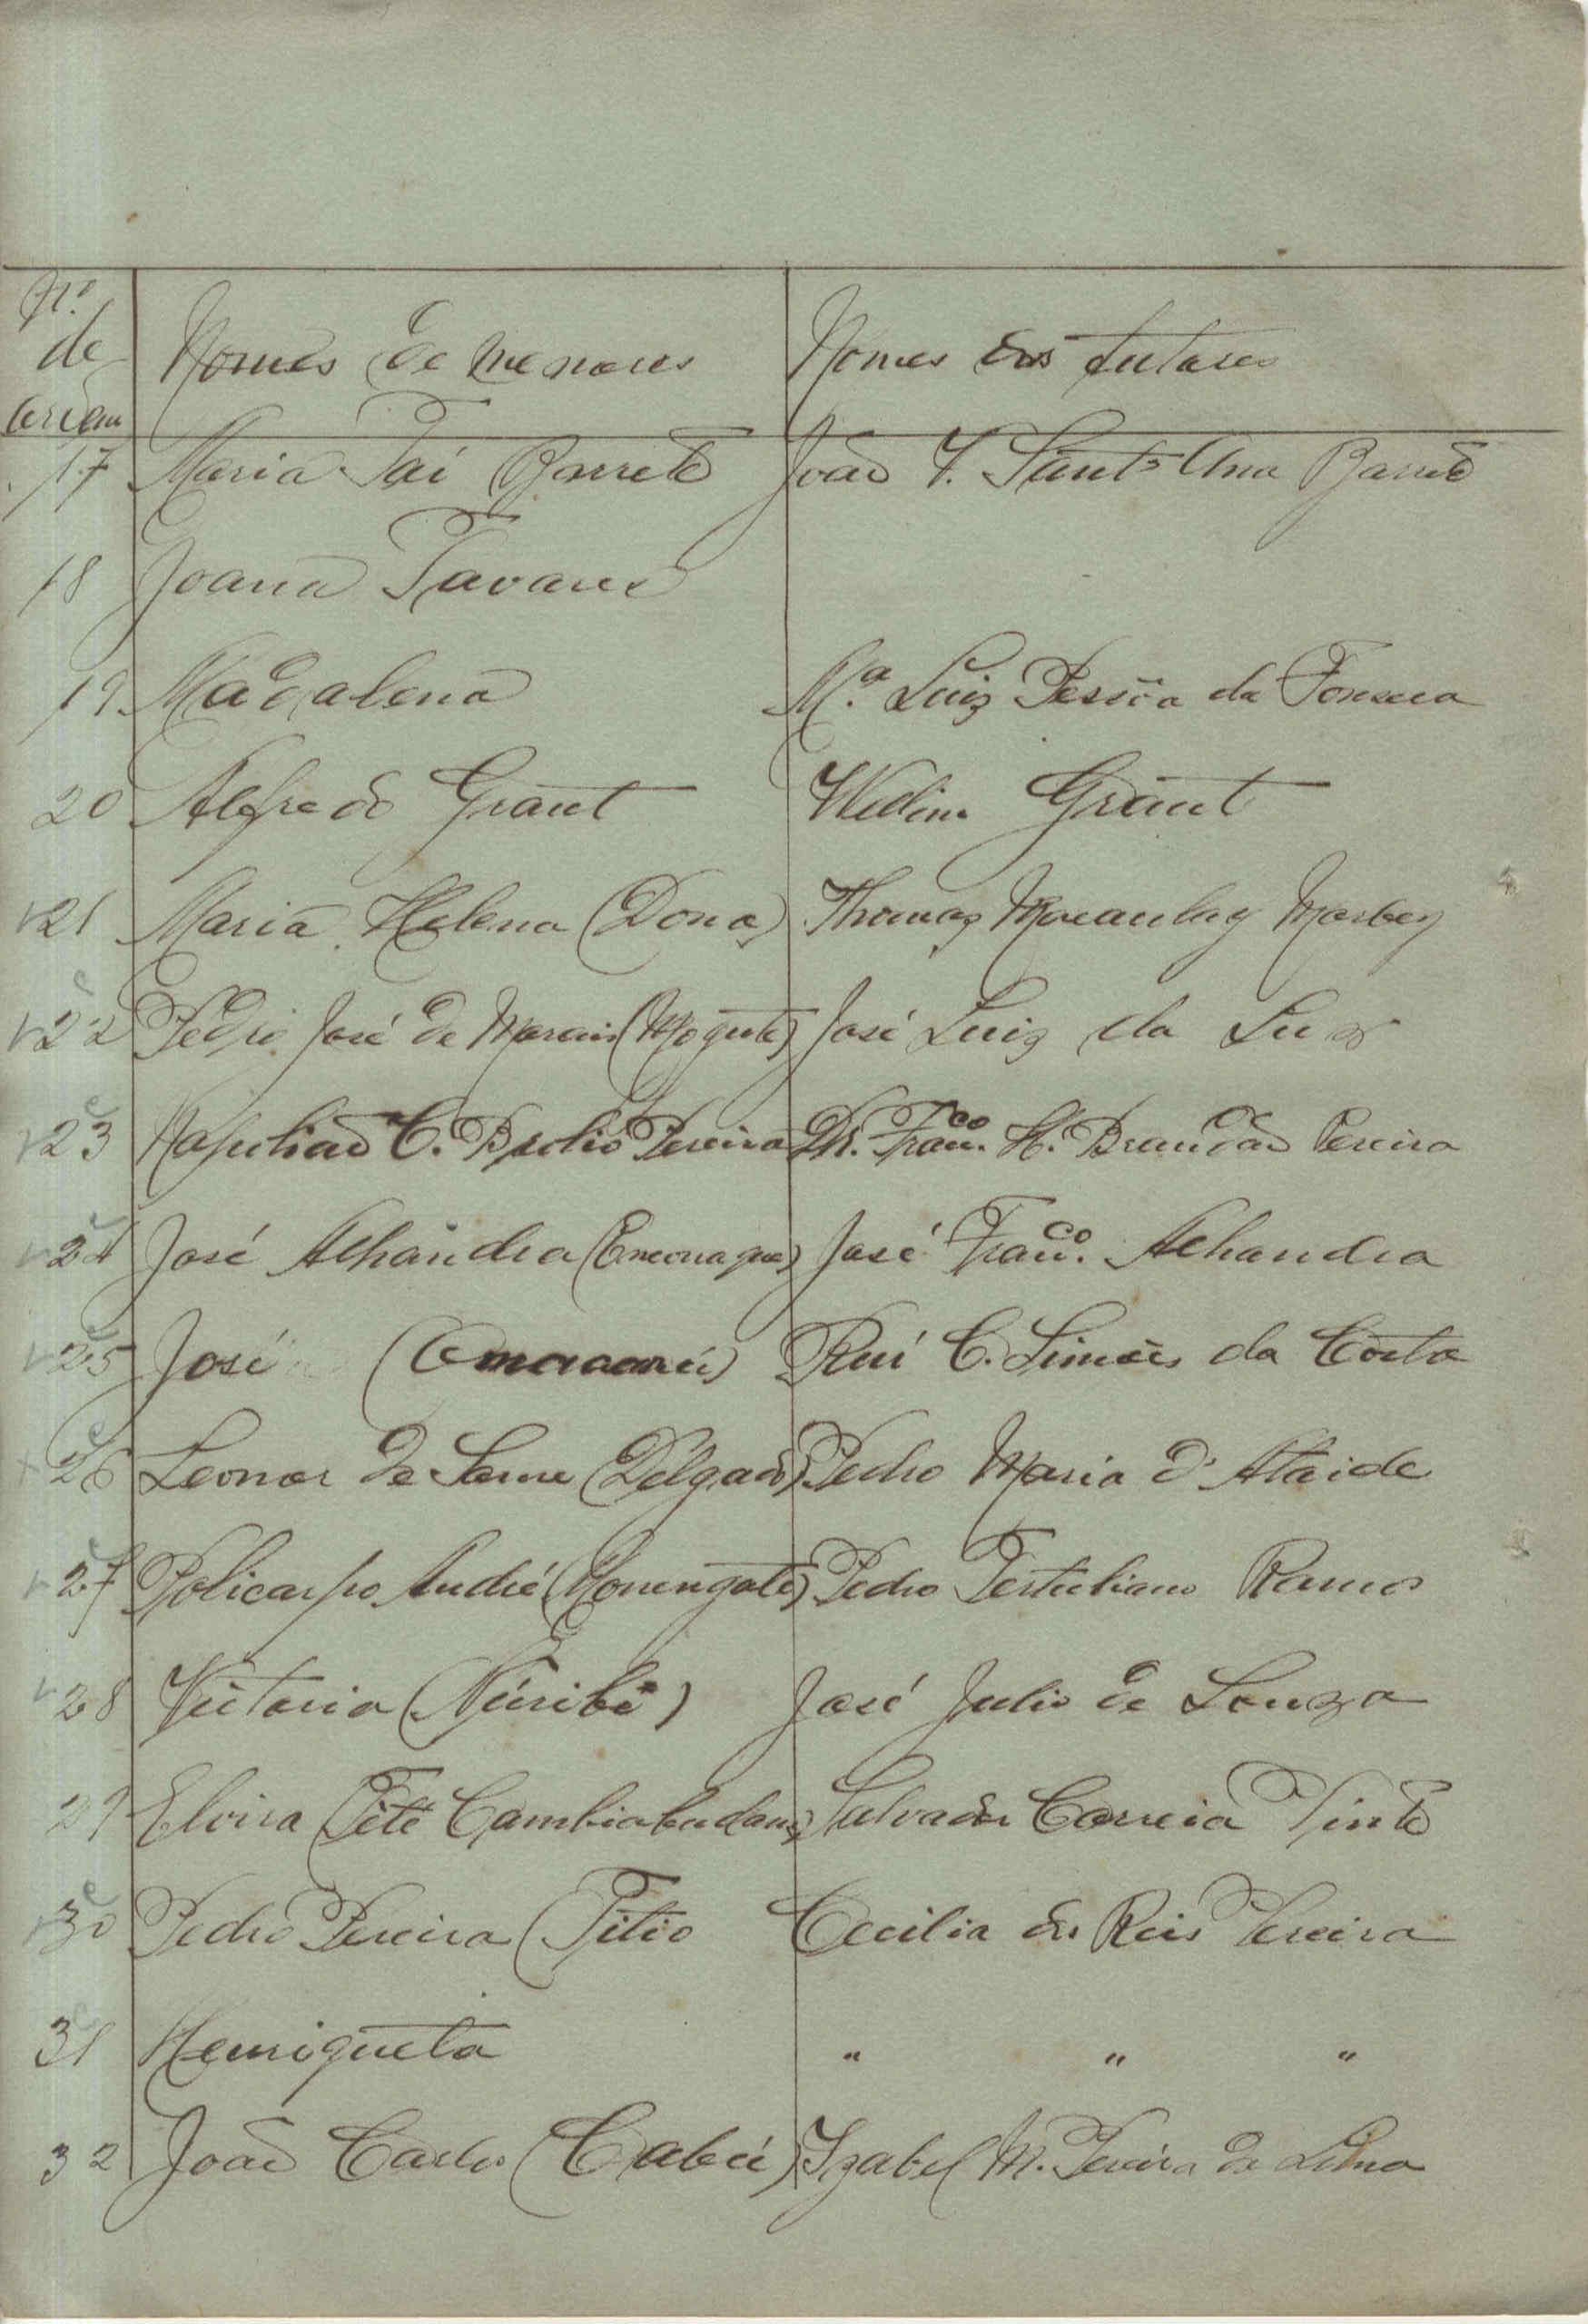 Nº
de
Ordem
Nomes de menores
Nomes dos tutores
17 Maria Taí Barreto João F. Sant'Ana Barreto
18 Joana Tavares
19 Magdalena Mª. Luiz Pessôa da Fonseca
20 Alfredo Grant Grant
21 Maria Helena (Dona) Thomaz Macaulay Marbey
22 Pedro José de Moraes José Luiz da Luz
23 C. Pereira Dr. Franco. H. Brandão Pereira
24 José Alhandra José Franco. Alhandra
25 José Rui C. Simões da Costa
26 Leonor de (Delgado) Pedro Maria d'Ataide
27 Policarpo André Pedro Tertuliano Ramos
28 Victoria José Julio de Souza
29 Elvira (Tété Salvador Correia Pinto
30 Pedro Pereira (Titio Cecilia dos Reis Pereira
31 Henriqueta " " "
32 João Carlos Izabel M. Pereira de Lima